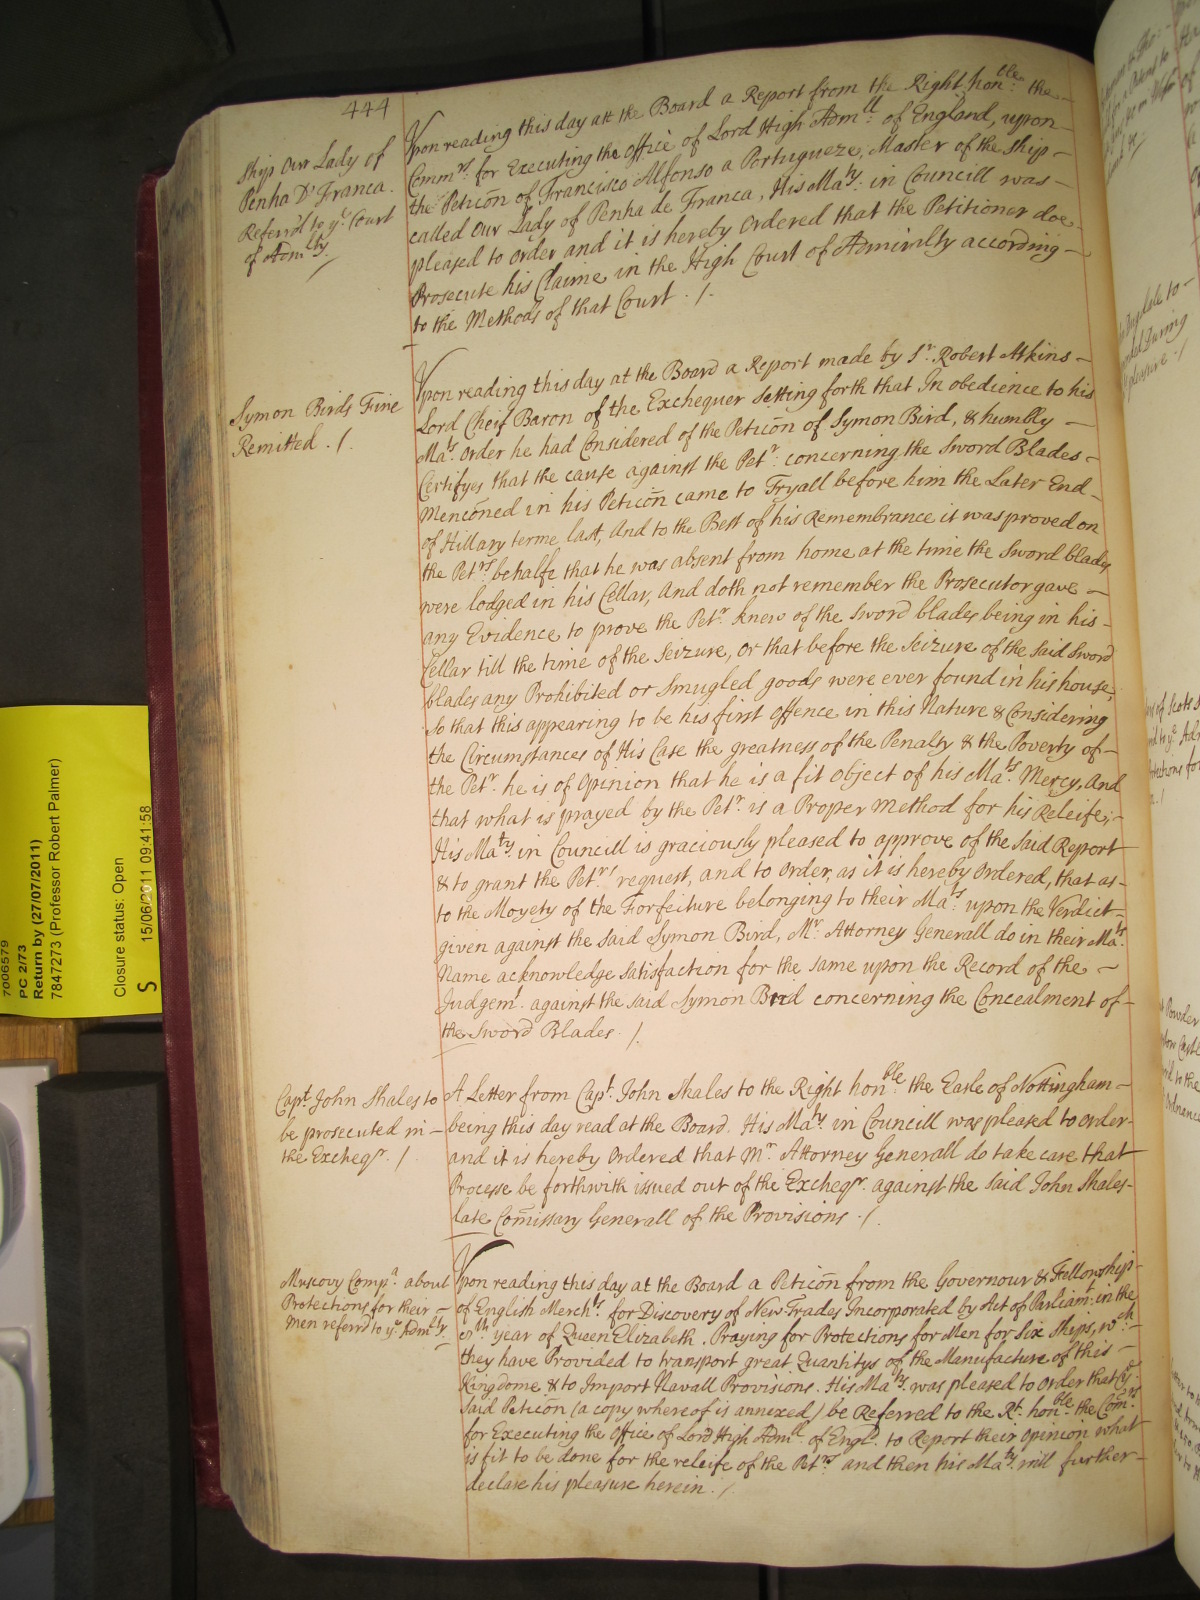 444
Ship Our Lady of
Penha D'Franca.
Referr'd to yᵉ Court
of Admˡᵗʸ. /
Upon reading this day att the Board a Report from the Right honᵇˡᵉ: the
Commʳˢ. for Executing the Office of Lord High Admˡˡ. of England, upon
the Peticõn of Francisco Alfonso a Portugueze, Master of the Ship
called Our Lady of Penha de Franca, His Maᵗʸ: in Councill was
pleased to order and it is hereby Ordered that the Petitioner doe
Prosecute his Claime in the High Court of Admiralty according
to the Methods of that Court. /.
Symon Birds Fine
Remitted. /.
Upon reading this day at the Board a Report made by Sʳ. Robert Atkins
Lord Cheif Baron of the Exchequer Setting forth that In obedience to his
Maᵗˢ. Order he had Considered of the Peticõn of Symon Bird, & humbly
Certifyes that the cause against the Petʳ: concerning the Sword Blades
Mencõned in his Peticõn came to Tryall before him the Later End
of Hillary terme last, And to the Best of his Remembrance it was proved on
the Petʳˢ. behalfe that he was absent from home at the time the Sword blades
were lodged in his Cellar, And doth not remember the Prosecutor gave
any Evidence to prove the Petʳ. knew of the Sword blades being in his
Cellar till the time of the Seizure, or that before the Seizure of the said Sword
blades any Prohibited or Smugled goods were ever found in his house,
So that this appearing to be his first Offence in this Nature & Considering
the Circumstances of His Case the greatness of the Penalty & the Poverty of
the Petʳ. he is of Opinion that he is a fit Object of his Maᵗˢ. Mercy, And
that what is prayed by the Petʳ. is a Proper Method for his Releife;
His Maᵗʸ. in Councill is graciously pleased to approve of the said Report
& to grant the Petʳˢ. request, and to Order, as it is hereby Ordered, that as
to the Moyety of the Forfeiture belonging to their Maᵗˢ: upon the Verdict
given against the said Symon Bird, Mʳ. Attorney Generall do in their Maᵗˢ.
Name acknowledge Satisfaction for the same upon the Record of the
Judgemᵗ. against the said Symon Bird concerning the Concealment of
the Sword Blades. /.
Capᵗ. John Shales to
be prosecuted in
the Excheqʳ. /.
A Letter from Capᵗ. John Shales to the Right honᵇˡᵉ: the Earle of Nottingham
being this day read at the Board. His Maᵗʸ. in Councill was pleased to order
and it is hereby Ordered that Mʳ. Attorney Generall do take care that
Processe be forthwith issued out of the Excheqʳ. against the said John Shales
late Com̃issary Generall of the Provisions. /.
Muscovy Compᵃ. about
Protections for their
Men referrd to yᵉ Admˡᵗʸ.
Upon reading this day at the Board a Peticõn from the Governour & Fellowship
of English Merchᵗˢ. for Discovery of New Trades Incorporated by Act of Parliamᵗ: in the
year of Queen Elizabeth. Praying for Protections for Men for Six Ships, wᶜʰ
they have Provided to transport great Quantitys of the Manufacture of this
Kingdome & to Import Navall Provisions. His Maᵗʸ. was pleased to order that yᵉ
said Peticõn (a copy whereof is annexed) be Referred to the Rᵗ. honᵇˡᵉ: the Com̃ʳˢ
for Executing the Office of Lord High Admˡˡ. of Englᵈ. to Report their opinion what
is fit to be done for the releife of the Petʳˢ. and then his Maᵗʸ. will further
declare his pleasure herein. /.
7006579
PC 2/73
Return by (27/07/2011)
7847273 (Professor Robert Palmer)
Closure status: Open
S 15/06/2011 09:41:58